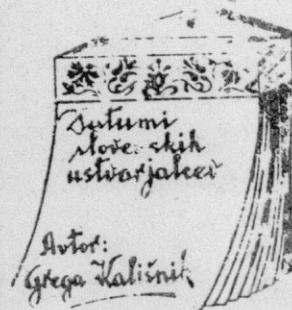 Datumi
slove. skih
ustvarjalcev
Avtor:
Grega Kališnik